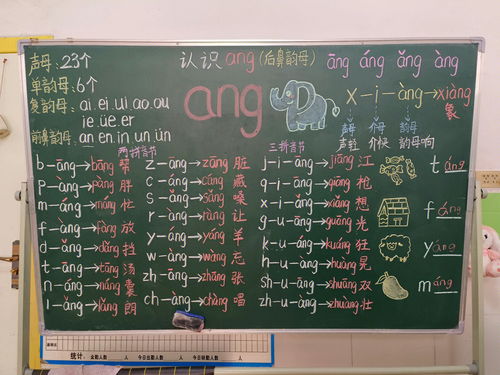 声母：23个
单韵母：6个
复韵母：ai.ei.ui ao.ou
ie üe er
前鼻韵母：an en in un ün
认识 ang (后鼻韵母)
ang
āng áng ǎng àng
x-i-àng→xiàng
象
声母 介母 韵母
声轻 介快 韵母响
两拼音节
b-āng→bāng 帮
p-àng→pàng 胖
m-áng→máng 忙
f-àng→fàng 放
d-ǎng→dǎng 挡
t-āng→tāng 汤
n-áng→náng 囊
l-ǎng→lǎng 朗
z-āng→zāng 脏
c-áng→cáng 藏
s-ǎng→sǎng 嗓
r-àng→ràng 让
y-áng→yáng 羊
w-ǎng→wǎng
zh-āng→zhāng 张
ch-àng→chàng 唱
三拼音节
j-i-āng→jiāng 江
q-i-āng→qiāng 枪
x-i-ǎng→xiǎng 想
g-u-āng→guāng 光
k-u-áng→kuáng 狂
h-u-ǎng→huǎng 晃
sh-u-āng→shuāng 双
zh-u-àng→zhuàng 壮
t áng
f áng
y áng
m áng
统计： 全勤人数 人 今日出勤人数 人 今日缺勤人数 人